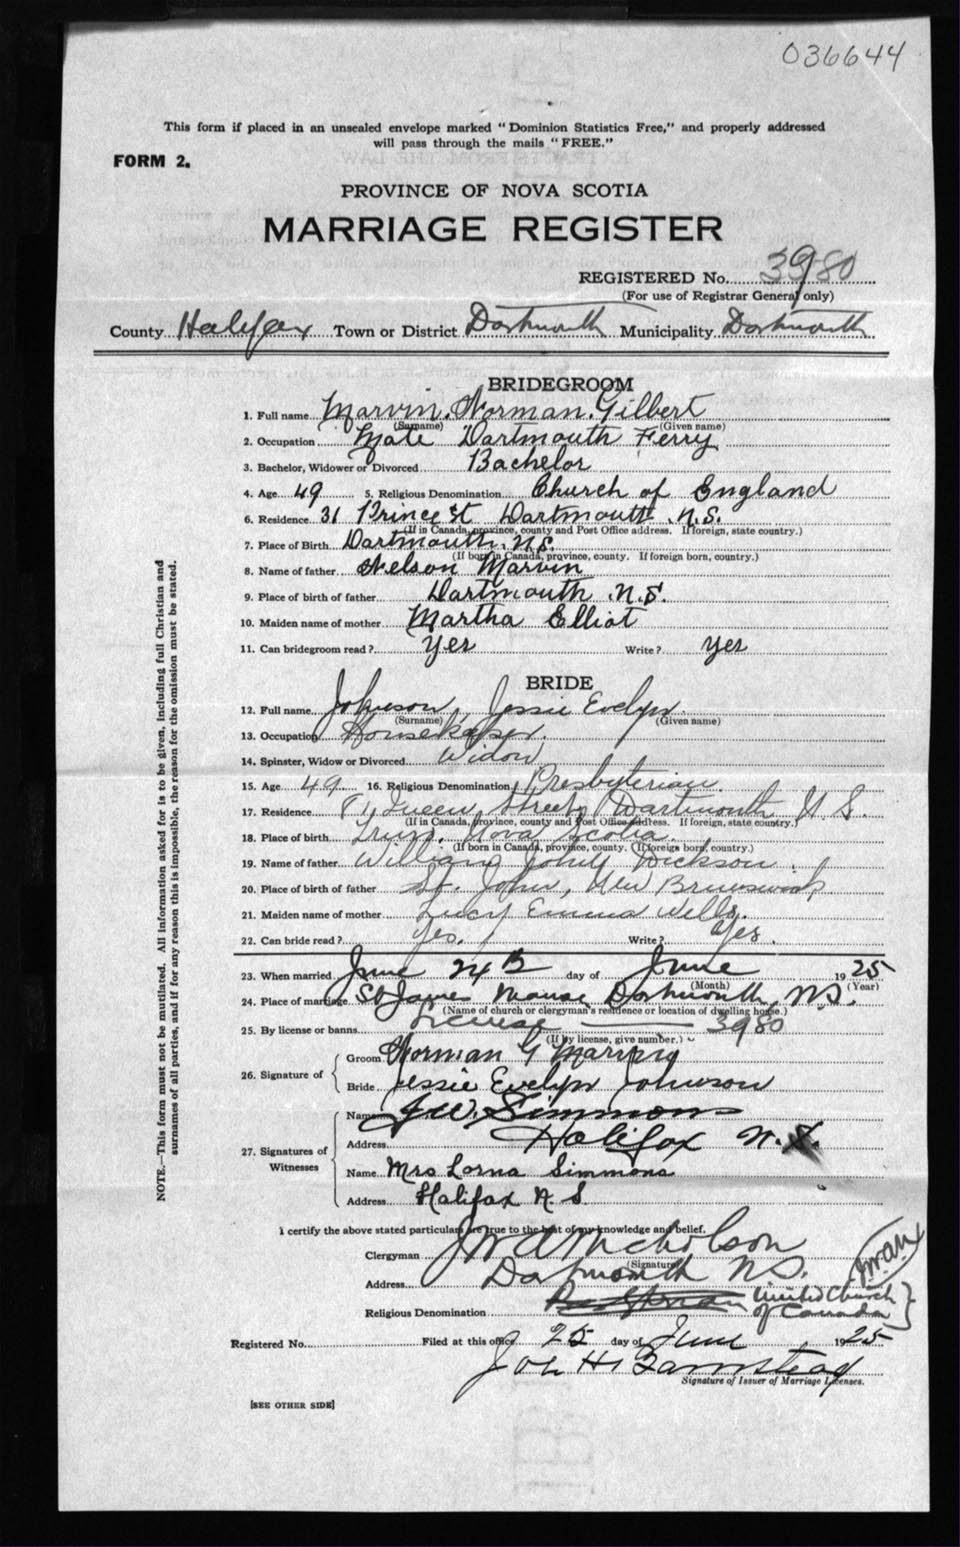 036644
This form if placed in an unsealed envelope marked "Dominion Statistics Free," and properly addressed
will pass through the mails "FREE."
FORM 2.
PROVINCE OF NOVA SCOTIA
MARRIAGE REGISTER
REGISTERED No. 3980
(For use of Registrar General only)
County Halifax Town or District Dartmouth Municipality Dartmouth
BRIDEGROOM
1. Full name Marvin, Norman Gilbert
(Surname) (Given name)
2. Occupation Mate Dartmouth Ferry
3. Bachelor, Widower or Divorced Bachelor
4. Age 49 5. Religious Denomination Church of England
6. Residence 31 Prince St Dartmouth N.S.
(If in Canada, province, county and Post Office address. If foreign, state country.)
7. Place of Birth Dartmouth, N.S.
(If born in Canada, province, county. If foreign born, country.)
8. Name of father Nelson Marvin
9. Place of birth of father Dartmouth N.S.
10. Maiden name of mother Martha Elliot
11. Can bridegroom read? Yes Write? Yes
BRIDE
12. Full name Johnson, Jessie Evelyn
(Surname) (Given name)
13. Occupation Housekeeper.
14. Spinster, Widow or Divorced Widow
15. Age 49 16. Religious Denomination Presbyterian
17. Residence Queen Street Dartmouth N.S.
(If in Canada, province, county and Post Office address. If foreign, state country.)
18. Place of birth Truro, Nova Scotia
(If born in Canada, province, county. (If foreign born, country.)
19. Name of father William John Dickson
20. Place of birth of father St. John, New Brunswick
21. Maiden name of mother Lucy Emma Wells.
22. Can bride read? Yes. Write? Yes.
23. When married June 24th day of June 1925
(Month) (Year)
24. Place of marriage St James Manse Dartmouth, N.S.
(Name of church or clergyman's residence or location of dwelling house.)
25. By license or banns License 3980
(If by license, give number.)
26. Signature of
Groom Norman G Marvin
Bride Jessie Evelyn Johnson
27. Signatures of Witnesses
Name J W. Simmons
Address Halifax N.S.
Name Mrs Lorna Simmons
Address Halifax N.S
I certify the above stated particulars are true to the best of my knowledge and belief.
Clergyman Nicholson
(Signature)
Address Dartmouth N.S.
Religious Denomination United Church
of Canada
Registered No. Filed at this office 25 day of June 1925
Signature of Issuer of Marriage Licenses.
[SEE OTHER SIDE]
NOTE.—This form must not be mutilated. All information asked for is to be given, including full Christian and
surnames of all parties, and if for any reason this is impossible, the reason for the omission must be stated.